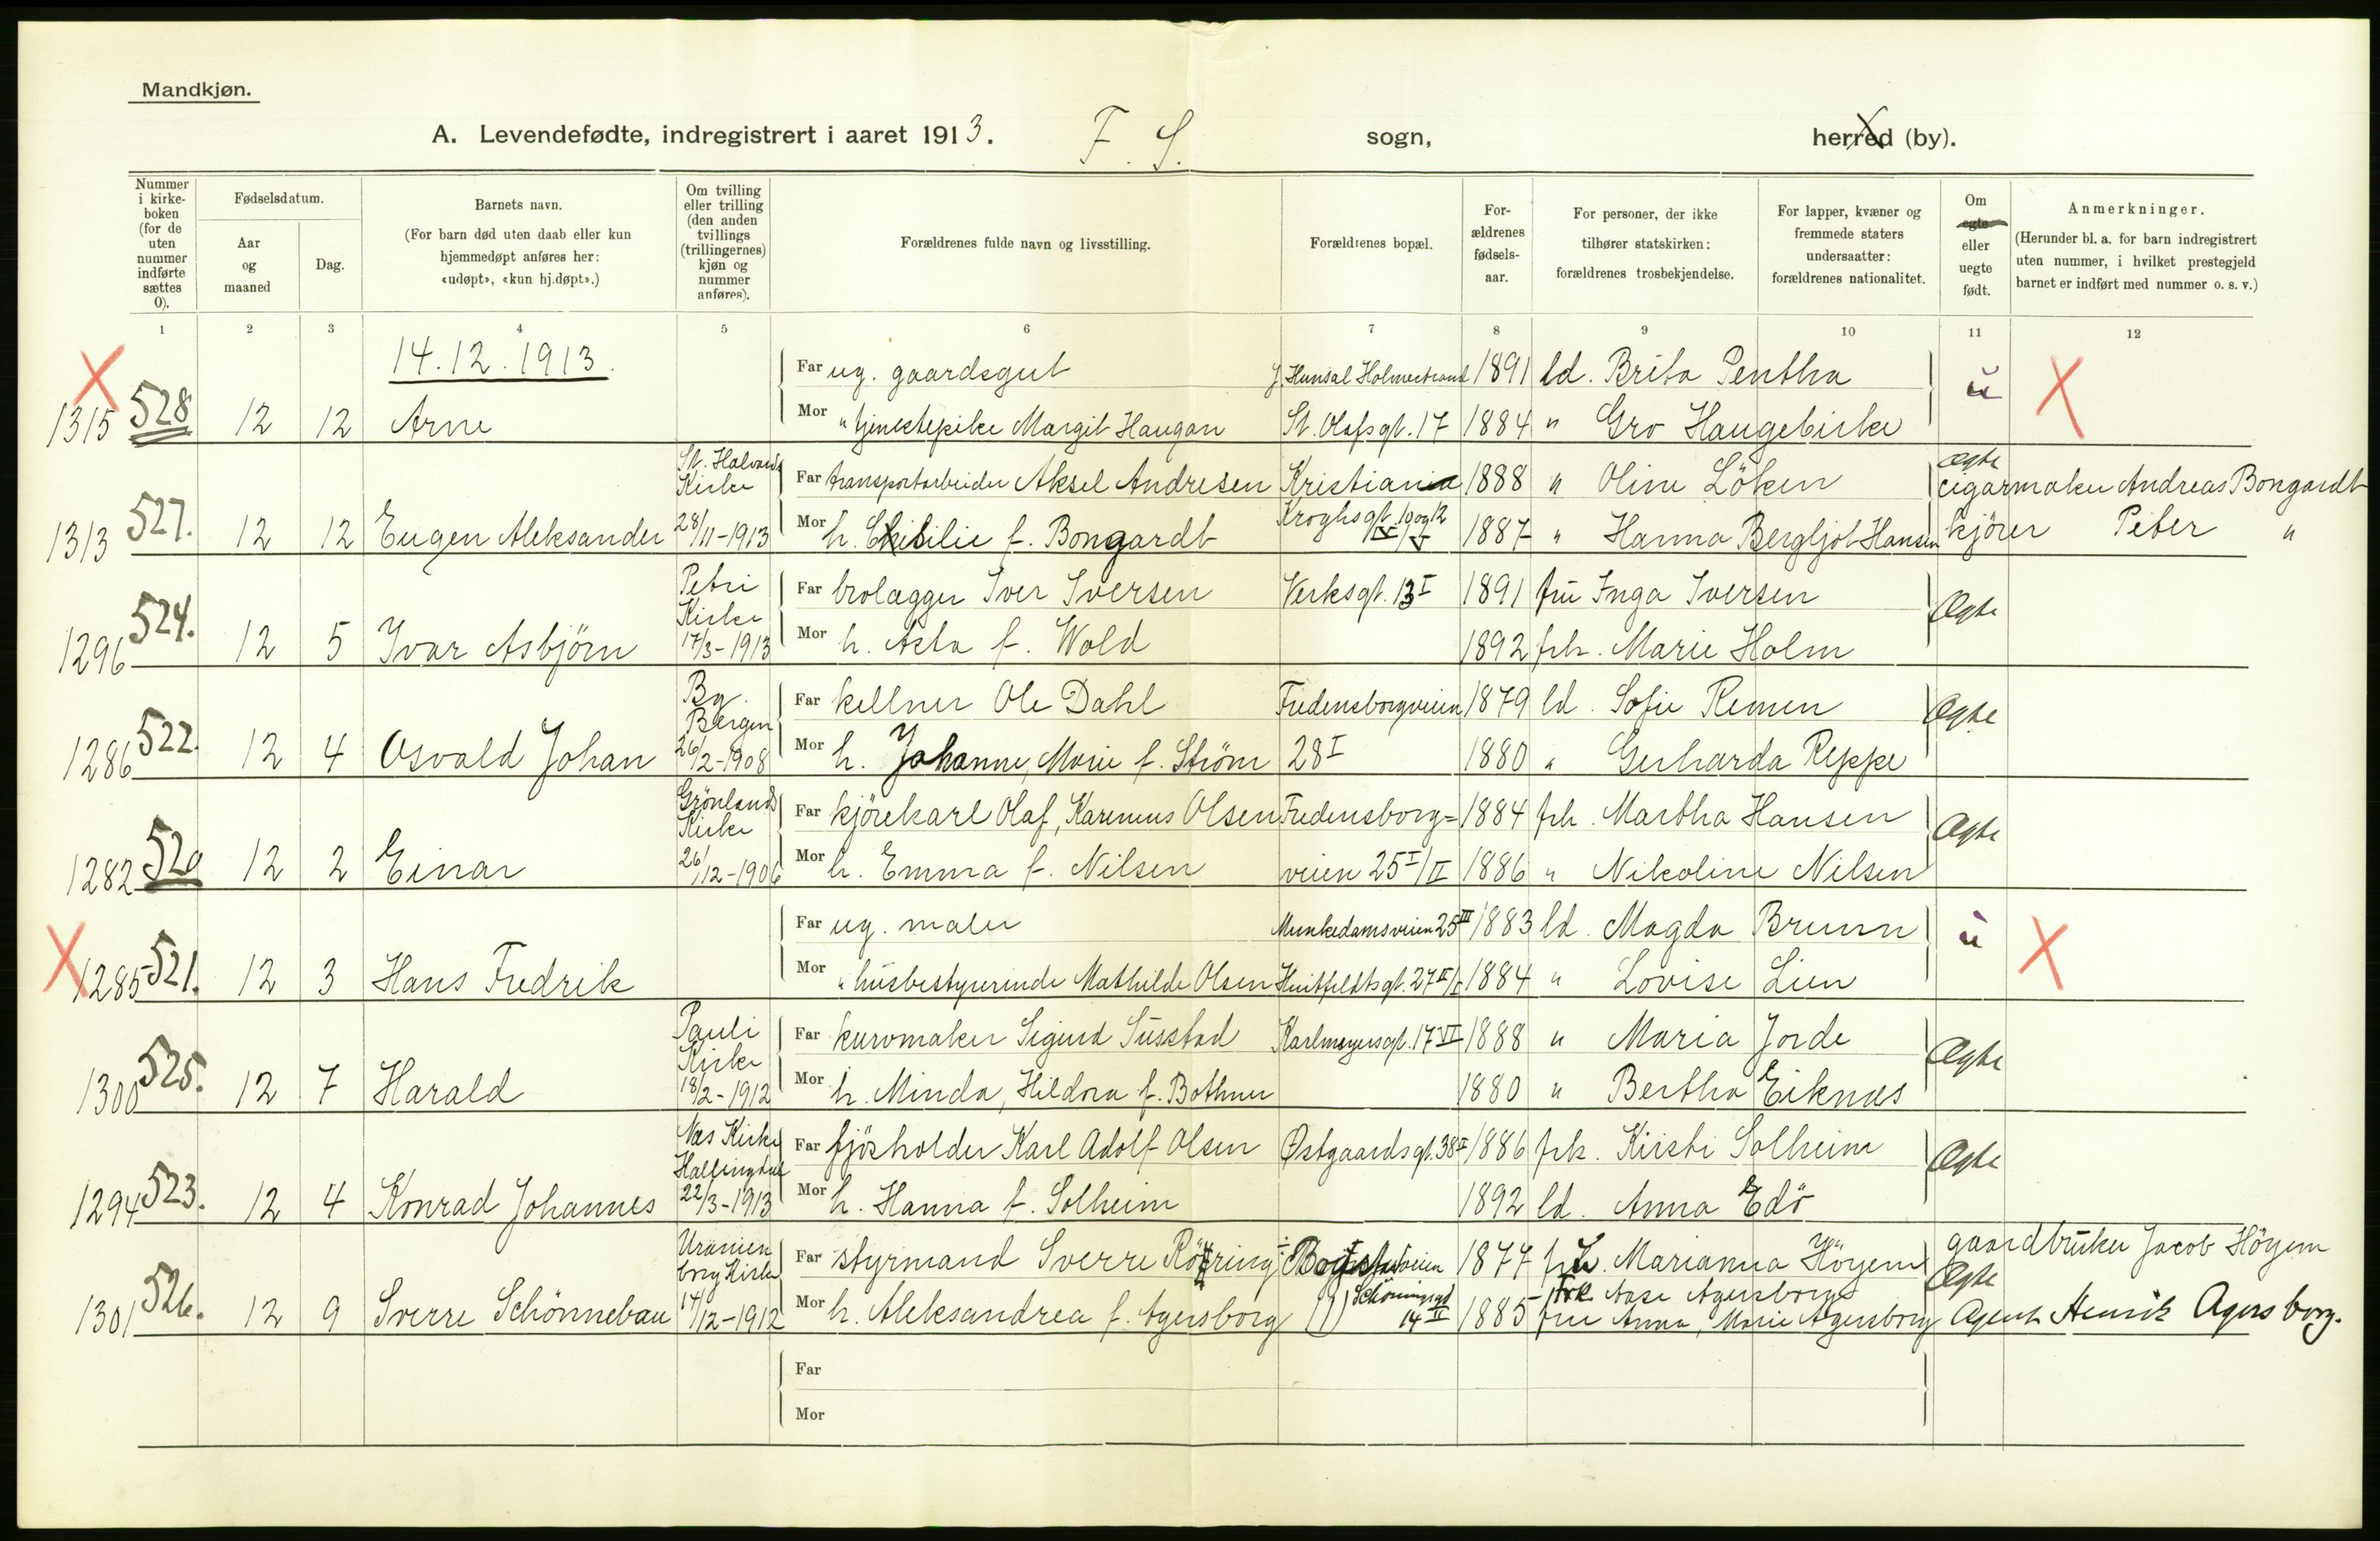 Mandkjøn.
A. Levendefødte, indregistrert i aaret 1913. F. S. sogn, herred (by).
Nummer i kirke- boken (for de uten nummer indførte sættes 0).
Fødselsdatum.
Aar og maaned
Dag.
Barnets navn.
(For barn død uten daab eller kun hjemmedøpt anføres her: «udøpt», «kun hj.døpt».)
Om tvilling eller trilling (den anden tvillings (trillingernes) kjøn og nummer anføres).
Forældrenes fulde navn og livsstilling.
Forældrenes bopæl.
For- ældrenes fødsels- aar.
For personer, der ikke tilhører statskirken: forældrenes trosbekjendelse.
For lapper, kvæner og fremmede staters undersaatter: forældrenes nationalitet.
Om egte eller uegte født.
Anmerkninger.
(Herunder bl. a. for barn indregistrert uten nummer, i hvilket prestegjeld barnet er indført med nummer o. s. v.)
1 2 3 4 5 6 7 8 9 10 11 12
14.12.1913.
Far ug. gaardsgut Holmestrand 1891 ld. Brita Pentha
1315 528 12 12 Arne Mor " tjenestepike Margit Haugan St. Olafsgt. 17 1884 " Gro Haugebirke u
St. Halvards Kirke Far transportarbeider Aksel Andresen Kristiania 1888 " Oline Löken Ægte cigarmaker Andreas Bongardt
1313 527. 12 12 Eugen Aleksander 28/11-1913 Mor h. f. Bongardt Kroghsgt. 19 og 12 1887 " Hanna Bergljot Hansen kjörer Peter "
Petri Kirke Far brolægger Iver Iversen Verksgt. 13 I 1891 fru Inga Iversen Ægte
1296 524. 12 5 Ivar Asbjörn 17/3-1913 Mor h. Asta f. Wold 1892 frk. Marie Holm
Bg. Bergen Far kellner Ole Dahl Fredensborgveien 1879 ld. Sofie Remen Ægte
1286 522. 12 4 Osvald Johan 26/2-1908 Mor h. Johanne, Marie f. Ström 28 I 1880 " Gerharda Reppe
Grönlands Kirke Far kjörekarl Olaf, Karenius Olsen Fredensborg= 1884 frk. Martha Hansen Ægte
1282 520 12 2 Einar 26/12-1906 Mor h. Emma f. Nilsen veien 25 I/II 1886 " Nikoline Nilsen
Far ug. maler Munkedamsveien 25 III 1883 ld. Magda Brunn u
1285 521. 12 3 Hans Fredrik Mor " husbestyrerinde Mathilde Olsen Huitfeldtsgt. 27 1884 " Lovise Lien
Pauli Kirke Far kurvmaker Sigurd Susstad Karlmeyersgt. 17 VI 1888 " Maria Jorde Ægte
1300 525. 12 7 Harald 18/2-1912 Mor h. Minda, Hildora f. Bothner 1880 " Bertha Eiknæs
Næs Kirke Hallingdal Far fjösholder Karl Adolf Olsen Østgaardsgt. 38 I 1886 frk. Kirsti Solheim Ægte
1294 523. 12 4 Konrad Johannes 22/3-1913 Mor h. Hanna f. Solheim 1892 ld. Anna Edö
Uranienborg Kirke Far styrmand Sverre Bogstadveien 1877 Marianna Höyem gaardbruker Jacob Höyem
Schöningsgt 14 II Frk. Aase Agersborg Ægte
1301 526. 12 9 Sverre Schönnebau 14/12-1912 Mor h. Aleksandrea f. Agersborg 1885 fru Anna, Marie Agersborg Agent Henrik Agersborg.
Far
Mor